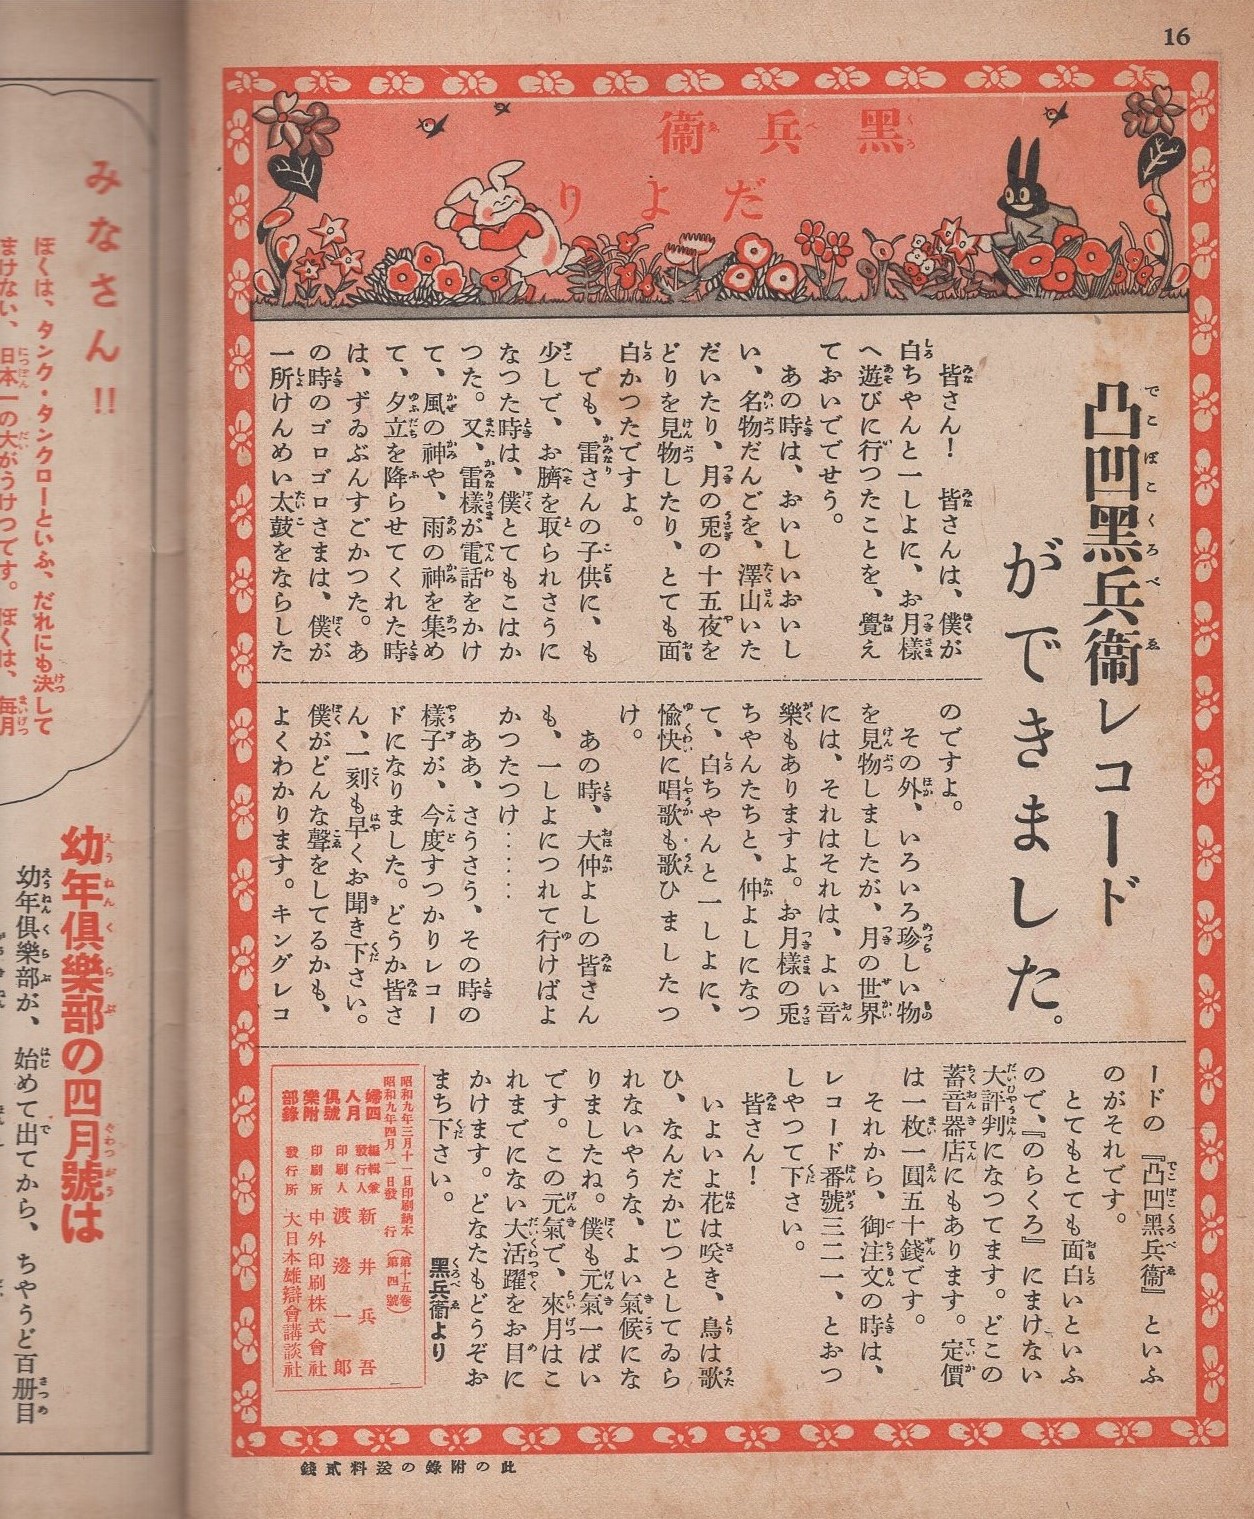 16
黑兵衞
だより
凸凹黑兵衞レコード
ができました。
皆さん! 皆さんは、僕が
白ちやんと一しよに、お月樣
へ遊びに行つたことを、覺え
ておいででせう。
あの時は、おいしいおいし
い、名物だんごを、澤山いた
だいたり、月の兎の十五夜を
どりを見物したり、とても面
白かつたですよ。
でも、雷さんの子供に、も
少しで、お臍を取られさうに
なつた時は、僕とてもこはか
つた。又、雷樣が電話をかけ
て、風の神や、雨の神を集め
て、夕立を降らせてくれた時
は、ずゐぶんすごかつた。あ
の時のゴロゴロさまは、僕が
一所けんめい太鼓をならした
のですよ。
その外、いろいろ珍しい物
を見物しましたが、月の世界
には、それはそれは、よい音
樂もありますよ。お月樣の兎
ちやんたちと、仲よしになつ
て、白ちやんと一しよに、
愉快に唱歌も歌ひましたつ
け。
あの時、大仲よしの皆さん
も、一しよにつれて行けばよ
かつたつけ‥‥‥
ああ、さうさう、その時の
樣子が、今度すつかりレコー
ドになりました。どうか皆さ
ん、一刻も早くお聞き下さい。
僕がどんな聲をしてるかも、
よくわかります。キングレコ
ードの『凸凹黑兵衞』といふ
のがそれです。
とてもとても面白いといふ
ので、『のらくろ』にまけない
大評判になつてます。どこの
蓄音器店にもあります。定價
は一枚一圓五十錢です。
それから、御注文の時は、
レコード番號三二一、とおつ
しやつて下さい。
皆さん!
いよいよ花は咲き、鳥は歌
ひ、なんだかじつとしてゐら
れないやうな、よい氣候にな
りましたね。僕も元氣一ぱい
です。この元氣で、來月はこ
れまでにない大活躍をお目に
かけます。どなたもどうぞお
まち下さい。 黑兵衞より
昭和九年三月十一日印刷納本
昭和九年四月一日發行(第十五卷第四號)
婦人倶樂部
四月號附錄
編輯兼發行人 新井兵吾
印刷人 渡邊一郎
印刷所 中外印刷株式會社
發行所 大日本雄辯會講談社
此の附錄の送料貳錢
みなさん!!
ぼくは、タンク・タンクローといふ、だれにも決して
まけない、日本一の大がうけつです。ぼくは、每月
幼年倶樂部の四月號は
幼年倶樂部が、始めて出てから、ちやうど百册目